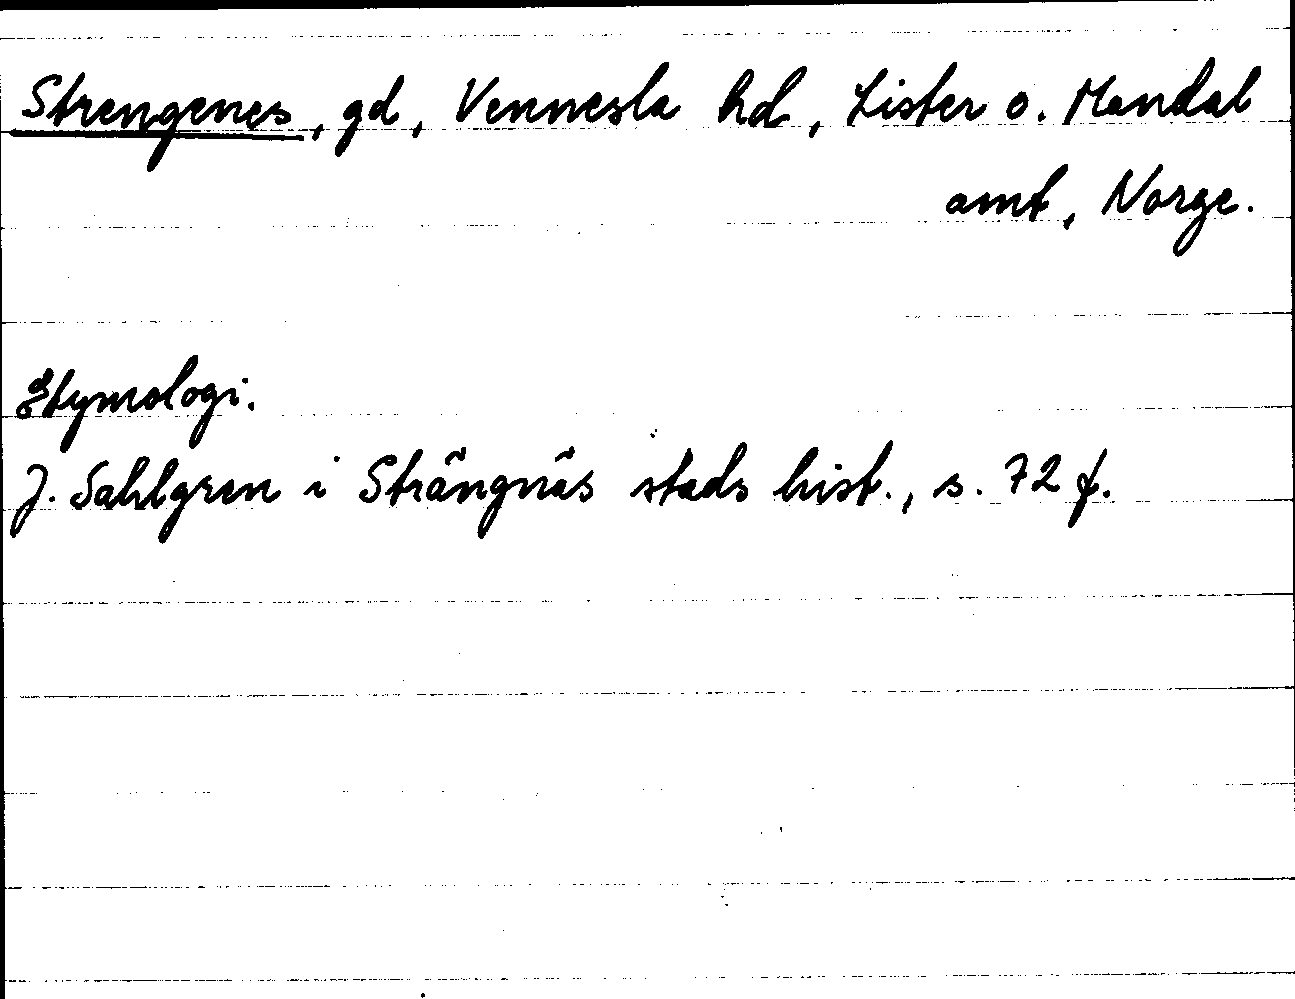 Strengenes, gd, Vennesla hd, Lister o. Mandal
amt, Norge.
Etymologi.
J. Sahlgren i Strängnäs stads hist., s. 72 f.